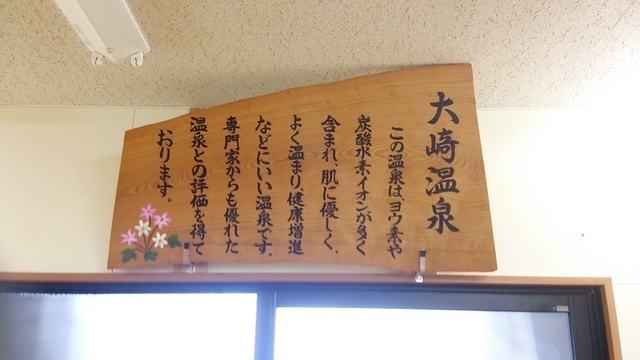 大崎温泉
この温泉は、ヨウ素や
炭酸水素イオンが多く
含まれ、肌に優しく、
よく温まり、健康増進
などにいい温泉です。
専門家からも優れた
温泉との評価を得て
おります。